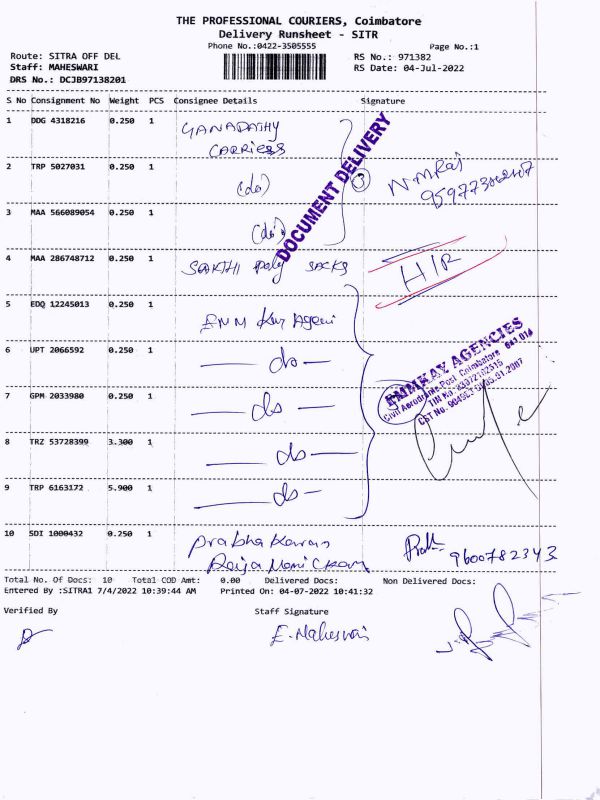 THE PROFESSIONAL COURIERS, Coimbatore
Delivery Runsheet - SITR
Phone No.:0422-3505555
Page No.:1
Route: SITRA OFF DEL
RS No.: 971382
Staff: MAHESWARI
RS Date: 04-Jul-2022
DRS No.: DCJB97138201
S No Consignment No Weight PCS Consignee Details Signature
1 DDG 4318216 0.250 1 GANAPATHY
CARRIERS
DOCUMENT DELIVERY
2 TRP 5027031 0.250 1 (do) 3 N.M.Raj
3 MAA 566089054 0.250 1 (do)
4 MAA 286748712 0.250 1 SAKTHI Poly SACKS
5 EDQ 12245013 0.250 1
EMMKAY AGENCIES
Civil Aerodrome Post, Coimbatore 641 014
6 UPT 2066592 0.250 1 — do —
7 GPM 2033980 0.250 1 — do —
8 TRZ 53728399 3.300 1 — do —
9 TRP 6163172 5.900 1 — do —
10 SDI 1000432 0.250 1 Prabha Karan
9600782343
Total No. Of Docs: 10 Total COD Amt: 0.00 Delivered Docs: Non Delivered Docs:
Entered By :SITRA1 7/4/2022 10:39:44 AM Printed On: 04-07-2022 10:41:32
Verified By Staff Signature
E. Maheswari